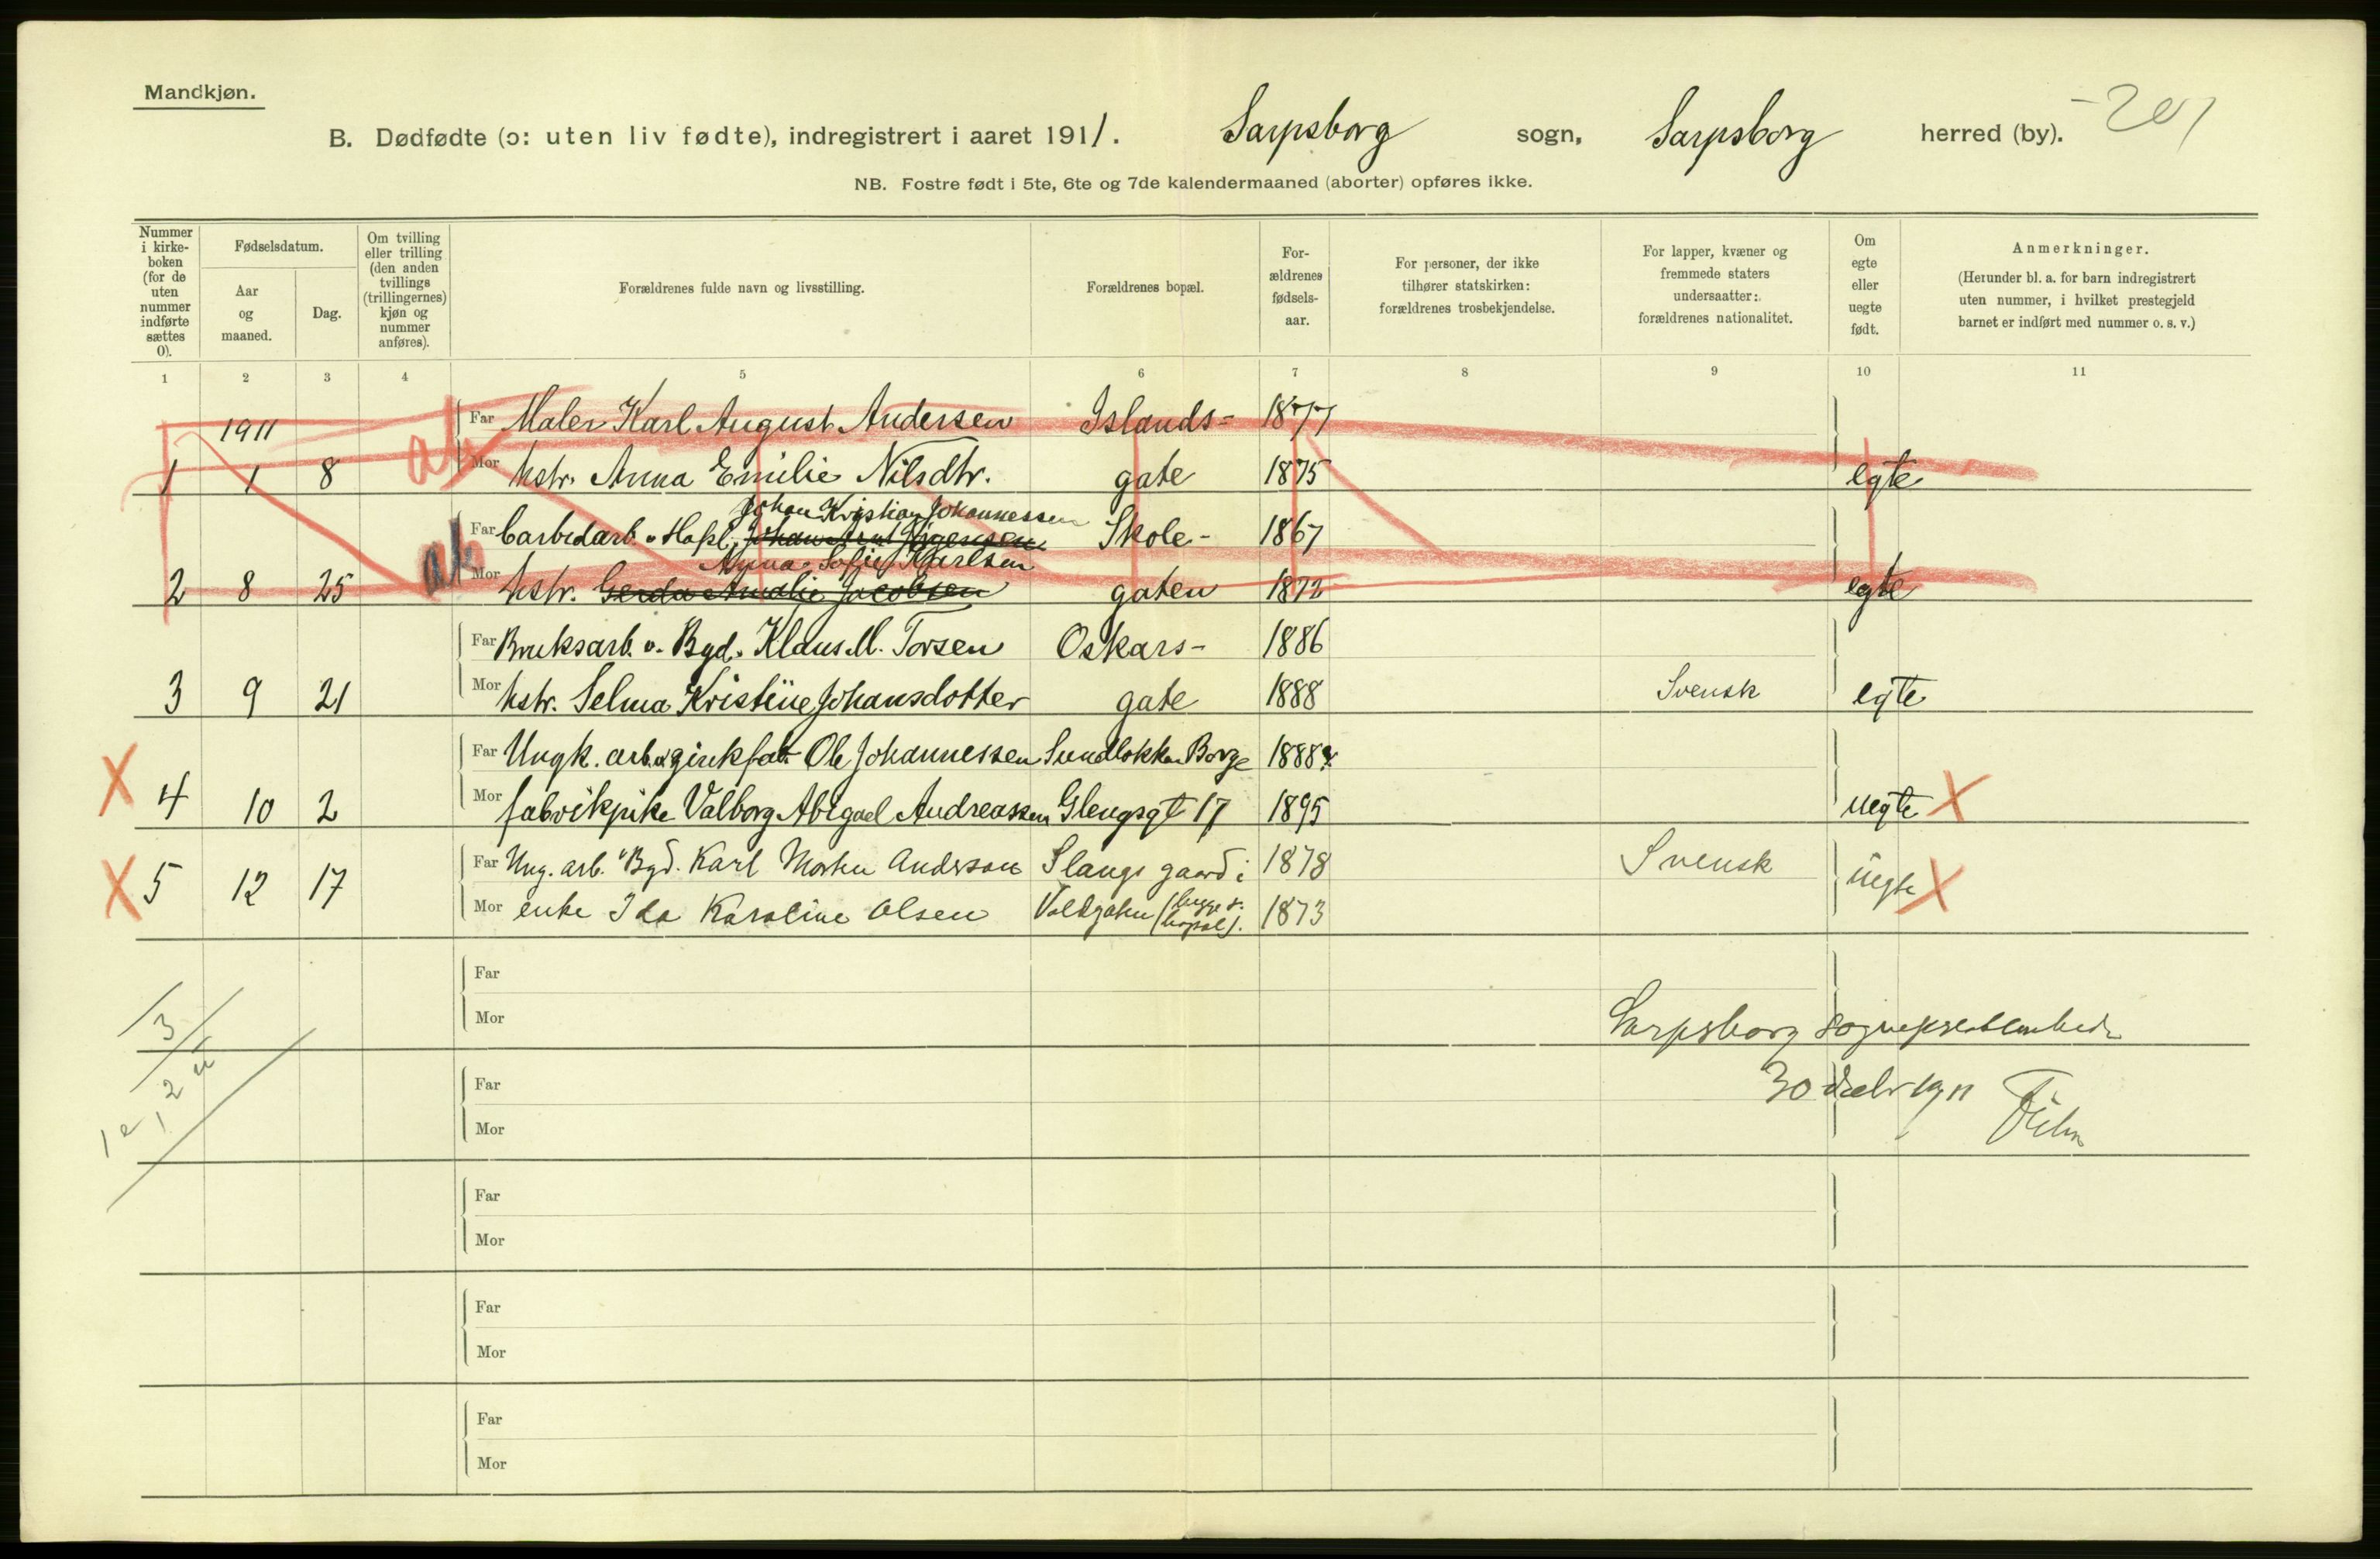 Mandkjøn.
B. Dødfødte (ɔ: uten liv fødte), indregistrert i aaret 1911. Sarpsborg sogn, Sarpsborg herred (by). 201
NB. Fostre født i 5te, 6te og 7de kalendermaaned (aborter) opføres ikke.
Nummer i kirke- boken (for de uten nummer indførte sættes 0).
Fødselsdatum.
Aar og maaned.
Dag.
Om tvilling eller trilling (den anden tvillings (trillingernes) kjøn og nummer anføres).
Forældrenes fulde navn og livsstilling.
Forældrenes bopæl.
For- ældrenes fødsels- aar.
For personer, der ikke tilhører statskirken: forældrenes trosbekjendelse.
For lapper, kvæner og fremmede staters undersaatter: forældrenes nationalitet.
Om egte eller uegte født.
Anmerkninger.
(Herunder bl. a. for barn indregistrert uten nummer, i hvilket prestegjeld barnet er indført med nummer o. s. v.)
1 2 3 4 5 6 7 8 9 10 11
1911 Far Maler Karl August Andersen Islands- 1877
1 1 8 ab Mor hstr. Anna Emilie Nilsdtr. gate 1875 egte
Johan Kristian Johannessen
Far Carbidarb. v. Hafsl. Johan Arnt Jørgensen Skole- 1867
Anna Sofie Karlsen
2 8 25 ab Mor hstr. Gerda Amalie Jacobsen gaten 1872 egte
Far Bruksarb. v. Bgd. Klaus M. Torsen Oskars- 1886
3 9 21 Mor hstr. Selma Kristine Johansdotter gate 1888 Svensk egte
X Far Ungk. arb. v. zinkfab. Ole Johannessen Sundløkka Borge 1888
4 10 2 Mor fabrikpike Valborg Abigael Andreassen Glengsgt 17 1895 uegte X
X 5 12 17 Far Ung. arb. v Bgd. Karl Morten Anderson Slangs gaard i 1878 Svensk uegte X
Mor enke Ida Karoline Olsen Voldgaten (begge s. bopæl). 1873
Far
Mor
Sarpsborg sogneprestembede
30 decbr 1911
Far
Mor
3
2 u
1 e
Far
Mor
Far
Mor
Far
Mor